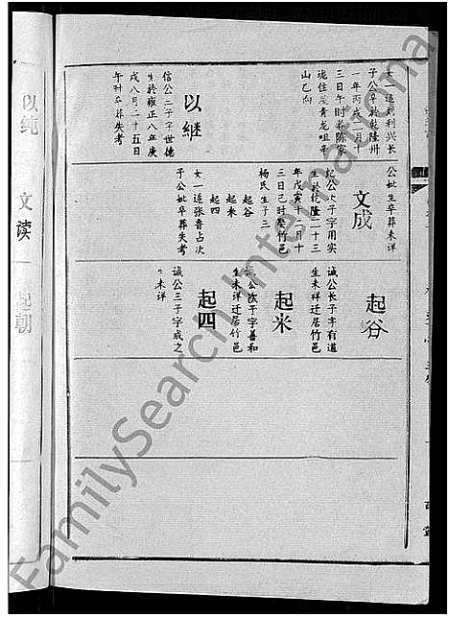 子公卒於乾隆卅
一年丙戌二月十
三日午时葬陈家
山巳向
以继
信公三子字世德
生於雍正八年庚
戌八月二十五日
午时卒葬失考
公妣生卒葬未详
文成
纪公次子字用实
生於乾隆二十三
年戊寅十一月十
三日己时娶竹邑
杨氏生子三
起谷
起米
起四
女一适张鲁占次
子公妣卒葬失考
起谷
诚公长子字有道
生未祥迁居竹邑
起米
诚公次子字善和
生未详迁居竹邑
起四
诚公三子字成之
未详
以纯
文读
起朝
FamilySearch International